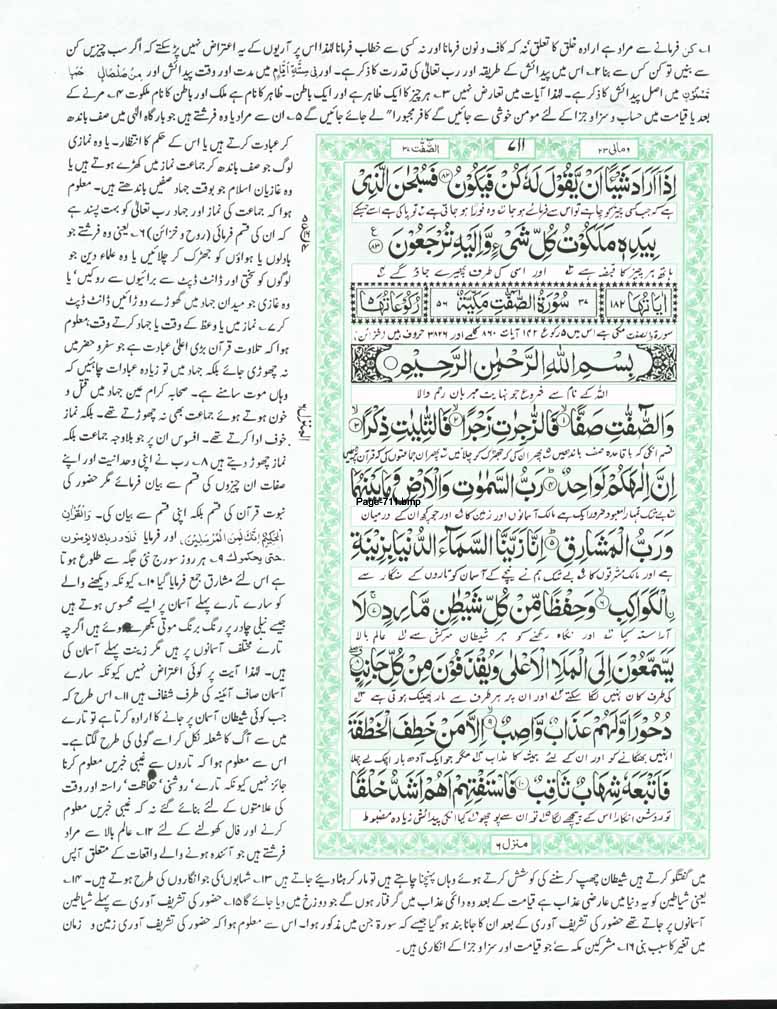 ۱۔ کن فرمانے سے مراد ہے ارادہ خلق کا تعلق‘ نہ کہ کاف و نون فرمانا اور نہ کسی سے خطاب فرمانا لہٰذا اس پر آریوں کے یہ اعتراض نہیں پڑ سکتے کہ اگر سب چیزیں کن
سے بنیں تو کن کس سے بنا ۲۔ اس میں پیدائش کے طریقہ اور رب تعالیٰ کی قدرت کا ذکر ہے۔ اور فِی سِتَّةِ اَیَّامٍ میں مدت اور وقت پیدائش اور مِنْ صَلْصَالٍ حَمَاٍ
مَّسْنُوْنٍ میں اصل پیدائش کا ذکر ہے۔ لہٰذا آیات میں تعارض نہیں ۳۔ ہر چیز کا ایک ظاہر ہے اور ایک باطن۔ ظاہر کا نام ہے ملک اور باطن کا نام ملکوت ۴۔ مرنے کے
بعد یا قیامت میں حساب و سزا و جزا کے لئے مومن خوشی سے جائیں گے کافر مجبورا" لے جائے جائیں گے ۵۔ ان سے مراد یا وہ فرشتے ہیں جو بارگاہ الٰہی میں صف باندھ
ومالی ۲۳
۷۱۱
الصّٰفّٰت ۳۷
اِذَاۤ اَرَادَ شَیْـًٔا اَنْ یَّقُوْلَ لَهٗ كُنْ فَیَكُوْنُ ﴿۸۲﴾ فَسُبْحٰنَ الَّذِیْ
ہے کہ جب کسی چیز کو چاہے تو اس سے فرمائے ہو جا تو وہ فورًا ہو جاتی ہے تو پاکی ہے اسے جسکے
بِیَدِهٖ مَلَكُوْتُ كُلِّ شَیْءٍ وَّ اِلَیْهِ تُرْجَعُوْنَ ﴿۸۳﴾
ہاتھ ہر چیز کا قبضہ ہے اور اسی کی طرف پھیرے جاؤ گے
اٰیَاتُهَا ۱۸۲
۳۷ سُوْرَةُ الصّٰٓفّٰتِ مَكِّیَّةٌ ۵۶
رُكُوْعَاتُهَا ۵
سورۃ والصفت مکی ہے اس میں ۵ رکوع ۱۸۲ آیات ۸۶۰ کلمے اور ۳۸۲۶ حروف ہیں (خزائن)
بِسْمِ اللّٰهِ الرَّحْمٰنِ الرَّحِیْمِ
اللہ کے نام سے شروع جو نہایت مہربان رحم والا
وَ الصّٰٓفّٰتِ صَفًّا ﴿۱﴾ فَالزّٰجِرٰتِ زَجْرًا ﴿۲﴾ فَالتّٰلِیٰتِ ذِكْرًا ﴿۳﴾
قسم انکی کہ با قاعدہ صف باندھیں پھر ان کی کہ جھڑک کر چلائیں پھر ان جماعتوں کی کہ قرآن پڑھیں
اِنَّ اِلٰهَكُمْ لَوَاحِدٌ ﴿۴﴾ رَبُّ السَّمٰوٰتِ وَ الْاَرْضِ وَ مَا بَیْنَهُمَا
بے شک تمہارا معبود ضرور ایک ہے مالک آسمانوں اور زمین کا اور جو کچھ ان کے درمیان
Page-711.bmp
وَ رَبُّ الْمَشَارِقِ ﴿۵﴾ اِنَّا زَیَّنَّا السَّمَآءَ الدُّنْیَا بِزِیْنَةِ
ہے اور مالک مشرقوں کا بے شک ہم نے نیچے کے آسمان کو تاروں کے سنگار سے
اِ۟لْكَوَاكِبِ ﴿۶﴾ وَ حِفْظًا مِّنْ كُلِّ شَیْطٰنٍ مَّارِدٍ ﴿۷﴾ لَا
آراستہ کیا اور نگاہ رکھنے کو ہر شیطان سرکش سے عالم بالا
یَسَّمَّعُوْنَ اِلَی الْمَلَاِ الْاَعْلٰى وَ یُقْذَفُوْنَ مِنْ كُلِّ جَانِبٍ ﴿۸﴾
کی طرف کان نہیں لگا سکتے اور ان پر ہر طرف سے مار پھینک ہوتی ہے
دُحُوْرًا وَّ لَهُمْ عَذَابٌ وَّاصِبٌ ﴿۹﴾ اِلَّا مَنْ خَطِفَ الْخَطْفَةَ
انہیں بھگانے کو اور ان کے لئے ہمیشہ کا عذاب مگر جو ایک آدھ بار اچک لے چلا
فَاَتْبَعَهٗ شِهَابٌ ثَاقِبٌ ﴿۱۰﴾ فَاسْتَفْتِهِمْ اَهُمْ اَشَدُّ خَلْقًا
تو روشن انگارا اس کے پیچھے لگا تو ان سے پوچھو کیا انکی پیدائش زیادہ مضبوط
منزل ۶
المنزل ۶
کر عبادت کرتے ہیں یا اس کے حکم کا انتظار۔ یا وہ نمازی
لوگ جو صف باندھ کر جماعت نماز میں کھڑے ہوتے ہیں یا
وہ غازیان اسلام جو بوقت جہاد صفیں باندھتے ہیں۔ معلوم
ہوا کہ جماعت کی نماز اور جہاد رب تعالیٰ کو بہت پسند ہے
کہ ان کی قسم فرمائی (روح و خزائن) ۶۔ یعنی وہ فرشتے جو
بادلوں یا ہواؤں کو جھڑک کر چلائیں یا وہ علماء دین جو
لوگوں کو سختی اور ڈانٹ ڈپٹ سے برائیوں سے روکیں‘ یا
وہ غازی جو میدان جہاد میں گھوڑے دوڑائیں ڈانٹ ڈپٹ
کر ۷۔ نماز میں یا وعظ کے وقت یا جہاد کرتے وقت‘ معلوم
ہوا کہ تلاوت قرآن بڑی اعلیٰ عبادت ہے جو سفر و حضر میں
نہ چھوڑی جائے بلکہ جہاد میں تو زیادہ عبادات چاہئیں کہ
وہاں موت سامنے ہے۔ صحابہ کرام عین جہاد میں قتل و
خون ہوتے ہوئے جماعت بھی نہ چھوڑتے تھے۔ بلکہ نماز
خوف ادا کرتے تھے۔ افسوس ان پر جو بلاوجہ جماعت بلکہ
نماز چھوڑ دیتے ہیں ۸۔ رب نے اپنی وحدانیت اور اپنے
صفات ان چیزوں کی قسم سے بیان فرمائے مگر حضور کی
نبوت قرآن کی قسم بلکہ اپنی قسم سے بیان کی۔ وَالْقُرْاٰنِ
الْحَكِیْمِ اِنَّكَ لَمِنَ الْمُرْسَلِیْنَ۔ اور فرمایا فَلَا وَرَبِّكَ لَا یُؤْمِنُوْنَ
حَتّٰی یُحَكِّمُوْكَ ۹۔ ہر روز سورج نئی جگہ سے طلوع ہوتا
ہے اس لئے مشارق جمع فرمایا گیا ۱۰۔ کیونکہ دیکھنے والے
کو سارے تارے پہلے آسمان پر ایسے محسوس ہوتے ہیں
جیسے نیلی چادر پر رنگ برنگ موتی بکھرے ہوئے ہیں اگرچہ
تارے مختلف آسمانوں پر ہیں مگر زینت پہلے آسمان کی
ہیں۔ لہٰذا آیت پر کوئی اعتراض نہیں کیونکہ سارے
آسمان صاف آئینہ کی طرف شفاف ہیں ۱۱۔ اس طرح کہ
جب کوئی شیطان آسمان پر جانے کا ارادہ کرتا ہے تو تارے
میں سے آگ کا شعلہ نکل کر اسے گولی کی طرح لگتا ہے۔
اس سے معلوم ہوا کہ تاروں سے غیبی خبریں معلوم کرنا
جائز نہیں کیونکہ تارے‘ روشنی‘ حفاظت‘ راستہ اور وقت
کی علامتوں کے لئے بنائے گئے نہ کہ غیبی خبریں معلوم
کرنے اور فال کھولنے کے لئے ۱۲۔ عالم بالا سے مراد
فرشتے ہیں جو آئندہ ہونے والے واقعات کے متعلق آپس
میں گفتگو کرتے ہیں شیطان چھپ کر سننے کی کوشش کرتے ہوئے وہاں پہنچنا چاہتے ہیں تو مار کر ہٹا دیئے جاتے ہیں ۱۳۔ شہابوں‘ کی جو انگاروں کی طرح ہوتے ہیں۔ ۱۴۔
یعنی شیاطین کو یہ دنیا میں عارضی عذاب ہے قیامت کے بعد وہ دائمی عذاب میں گرفتار ہوں گے جو دوزخ میں دیا جائے گا ۱۵۔ حضور کی تشریف آوری سے پہلے شیاطین
آسمانوں پر جاتے تھے حضور کی تشریف آوری کے بعد ان کا جانا بند ہو گیا جیسے کہ سورۃ جن میں مذکور ہوا۔ اس سے معلوم ہوا کہ حضور کی تشریف آوری زمین و زمان
میں تغیر کا سبب بنی ۱۶۔ مشرکین مکہ سے‘ جو قیامت اور سزا و جزا کے انکاری ہیں۔